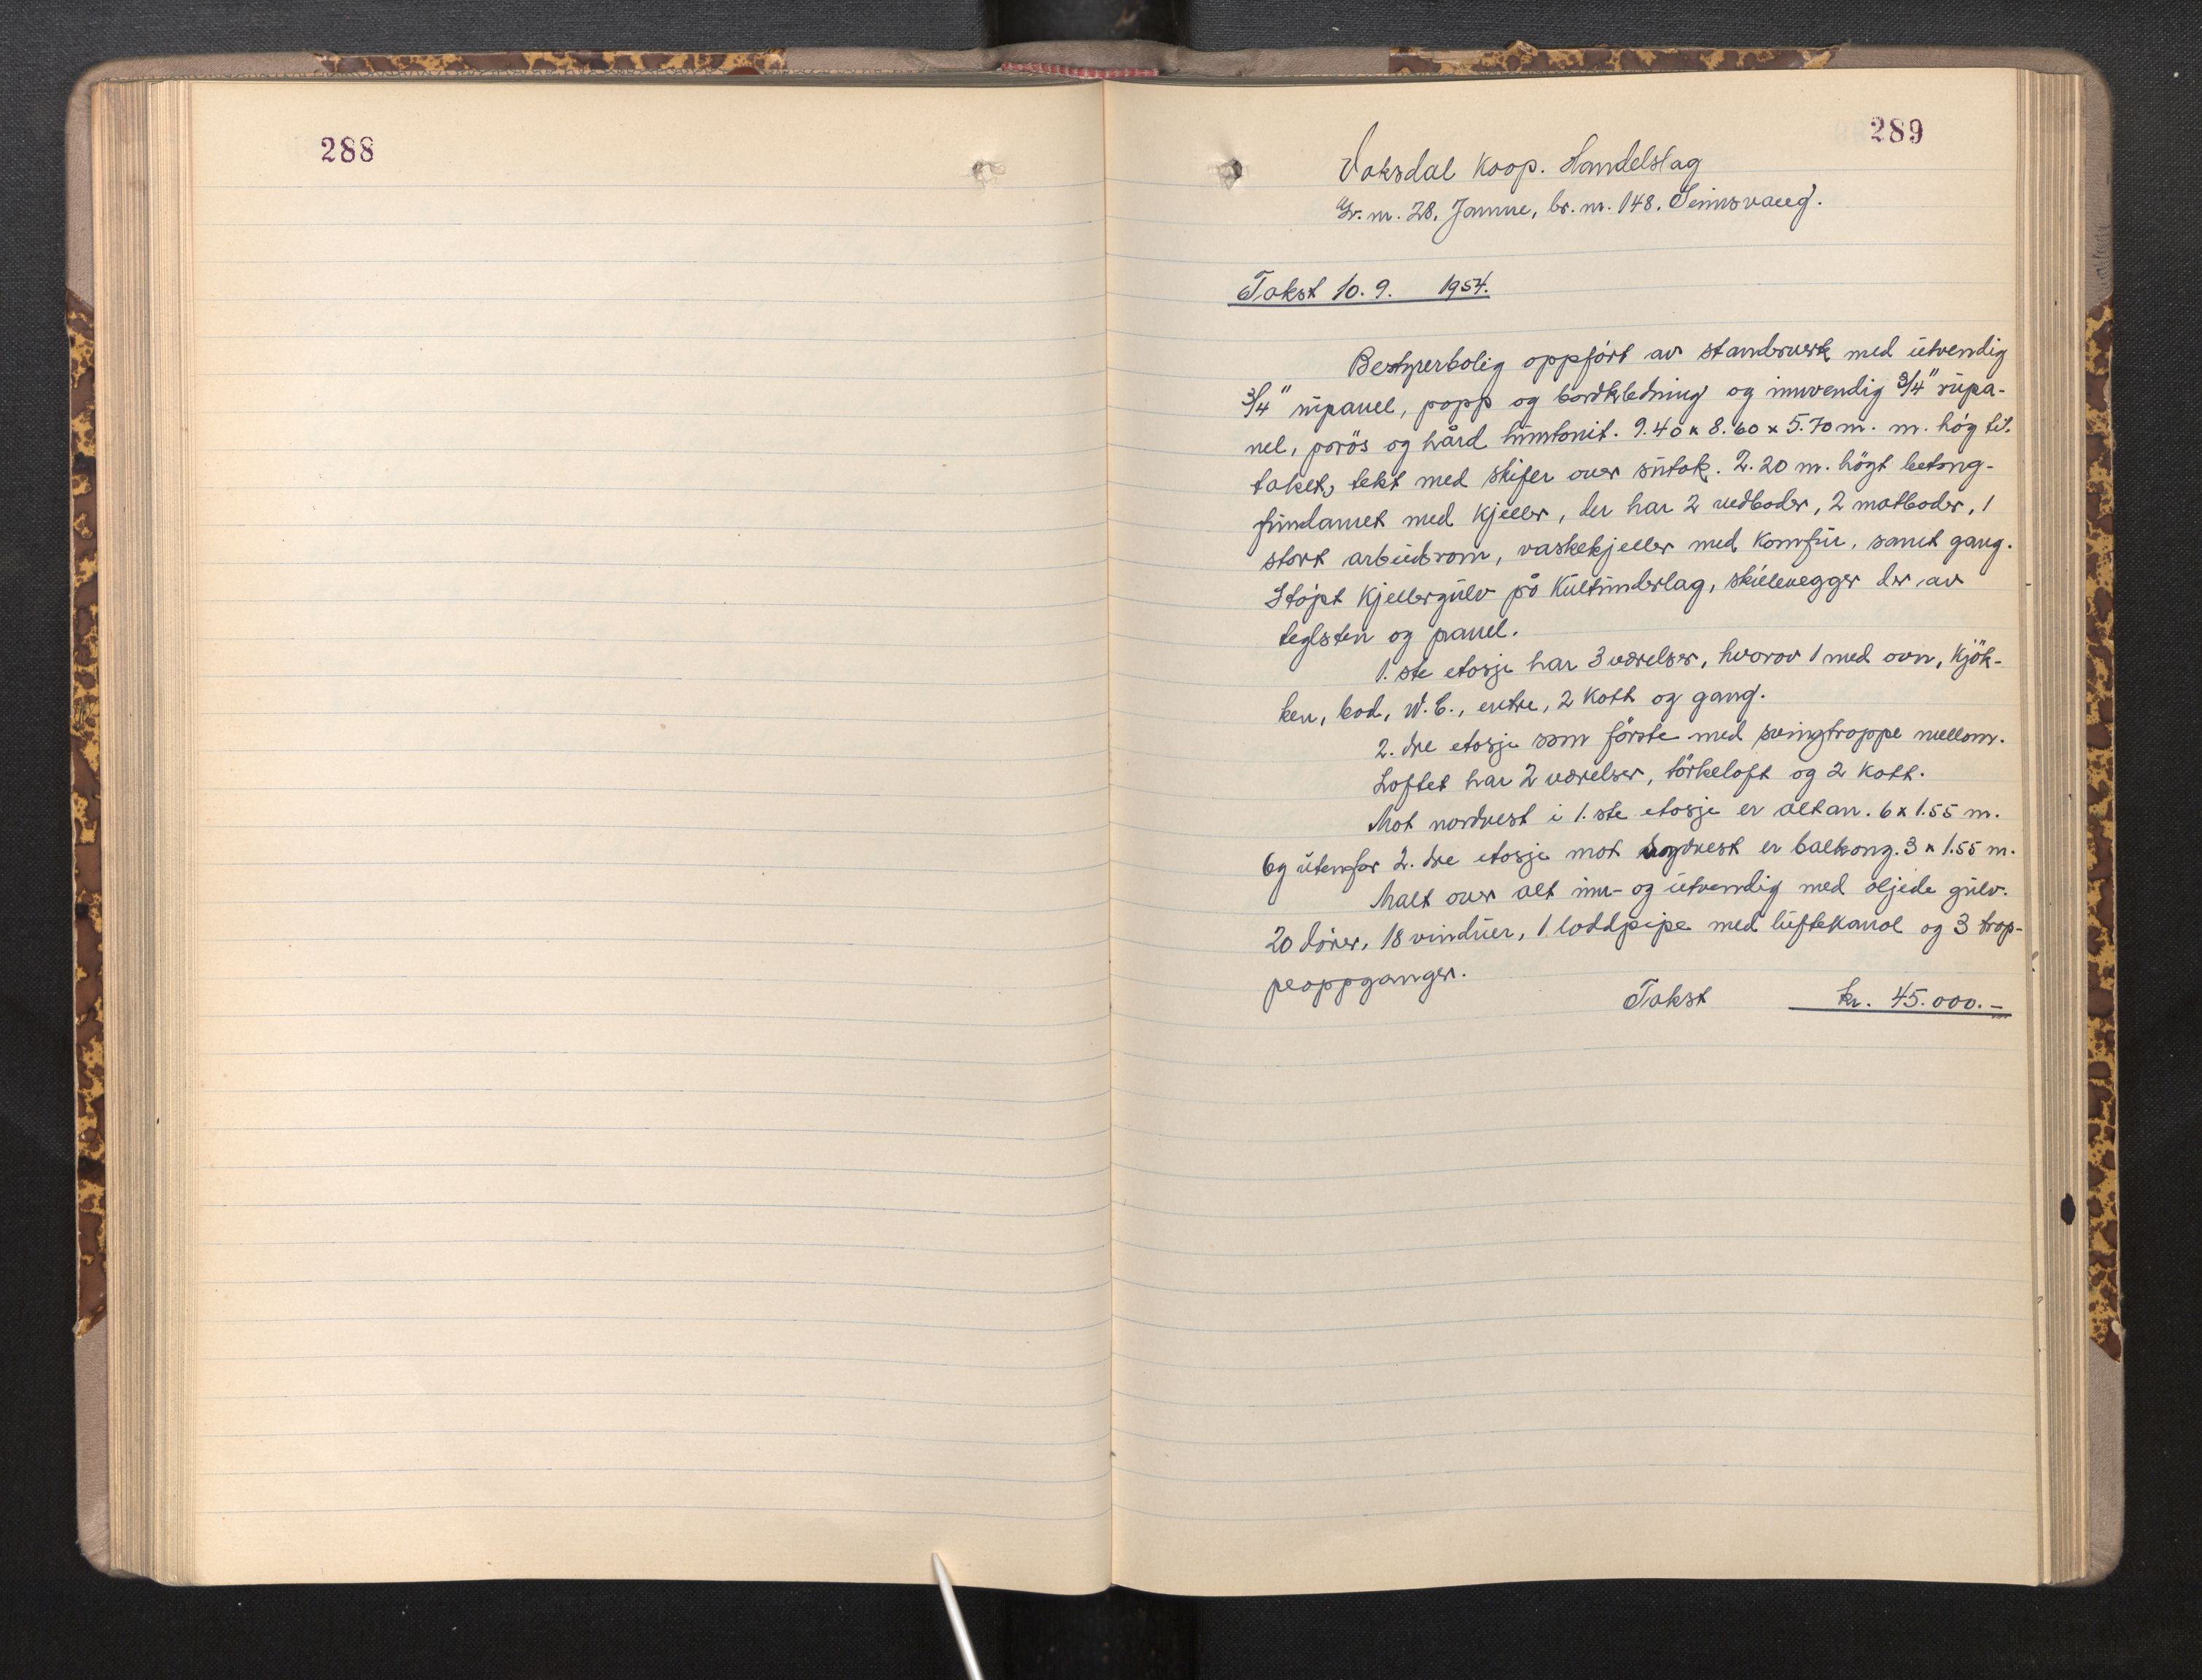 288
289
Vaksdal Koop. Handelslag
Gr. nr. 28, Jamne, br. nr. 148.
Takst 10. 9. 1954.
Bestyrerbolig oppført av standsverk med utvendig
3/4" rupanel, papp og bordkledning og innvendig 3/4" rupa-
nel, porös og hård huntonit. 9.40 x 8.60 x 5.70 m. m. høg til
taket, tekt med skifer over sutak. 2.20 m. högt betong-
fundamet med kjeller, der har 2 vedboder, 2 matboder, 1
stort arbeidsrom, vaskekjeller med komfur, samt gang.
Støpt kjellergulv på kultunderlag, skillevegger der av
teglsten og panel.
1. ste etasje har 3 værelser, hvorav 1 med ovn, kjök-
ken, bod, W.C., entre, 2 kott og gang.
2. dre etasje som förste med svingtrappe mellom.
Loftet har 2 værelser, törkeloft og 2 kott.
Mot nordvest i 1. ste etasje er altan. 6 x 1.55 m.
Og utenfor 2. dre etasje mot er balkong. 3 x 1.55 m.
Malt over alt inn- og utvendig med oljede gulv.
20 dører, 18 vinduer, 1 loddpipe med luftekanal og 3 trap-
peoppganger.
Takst kr. 45.000.-